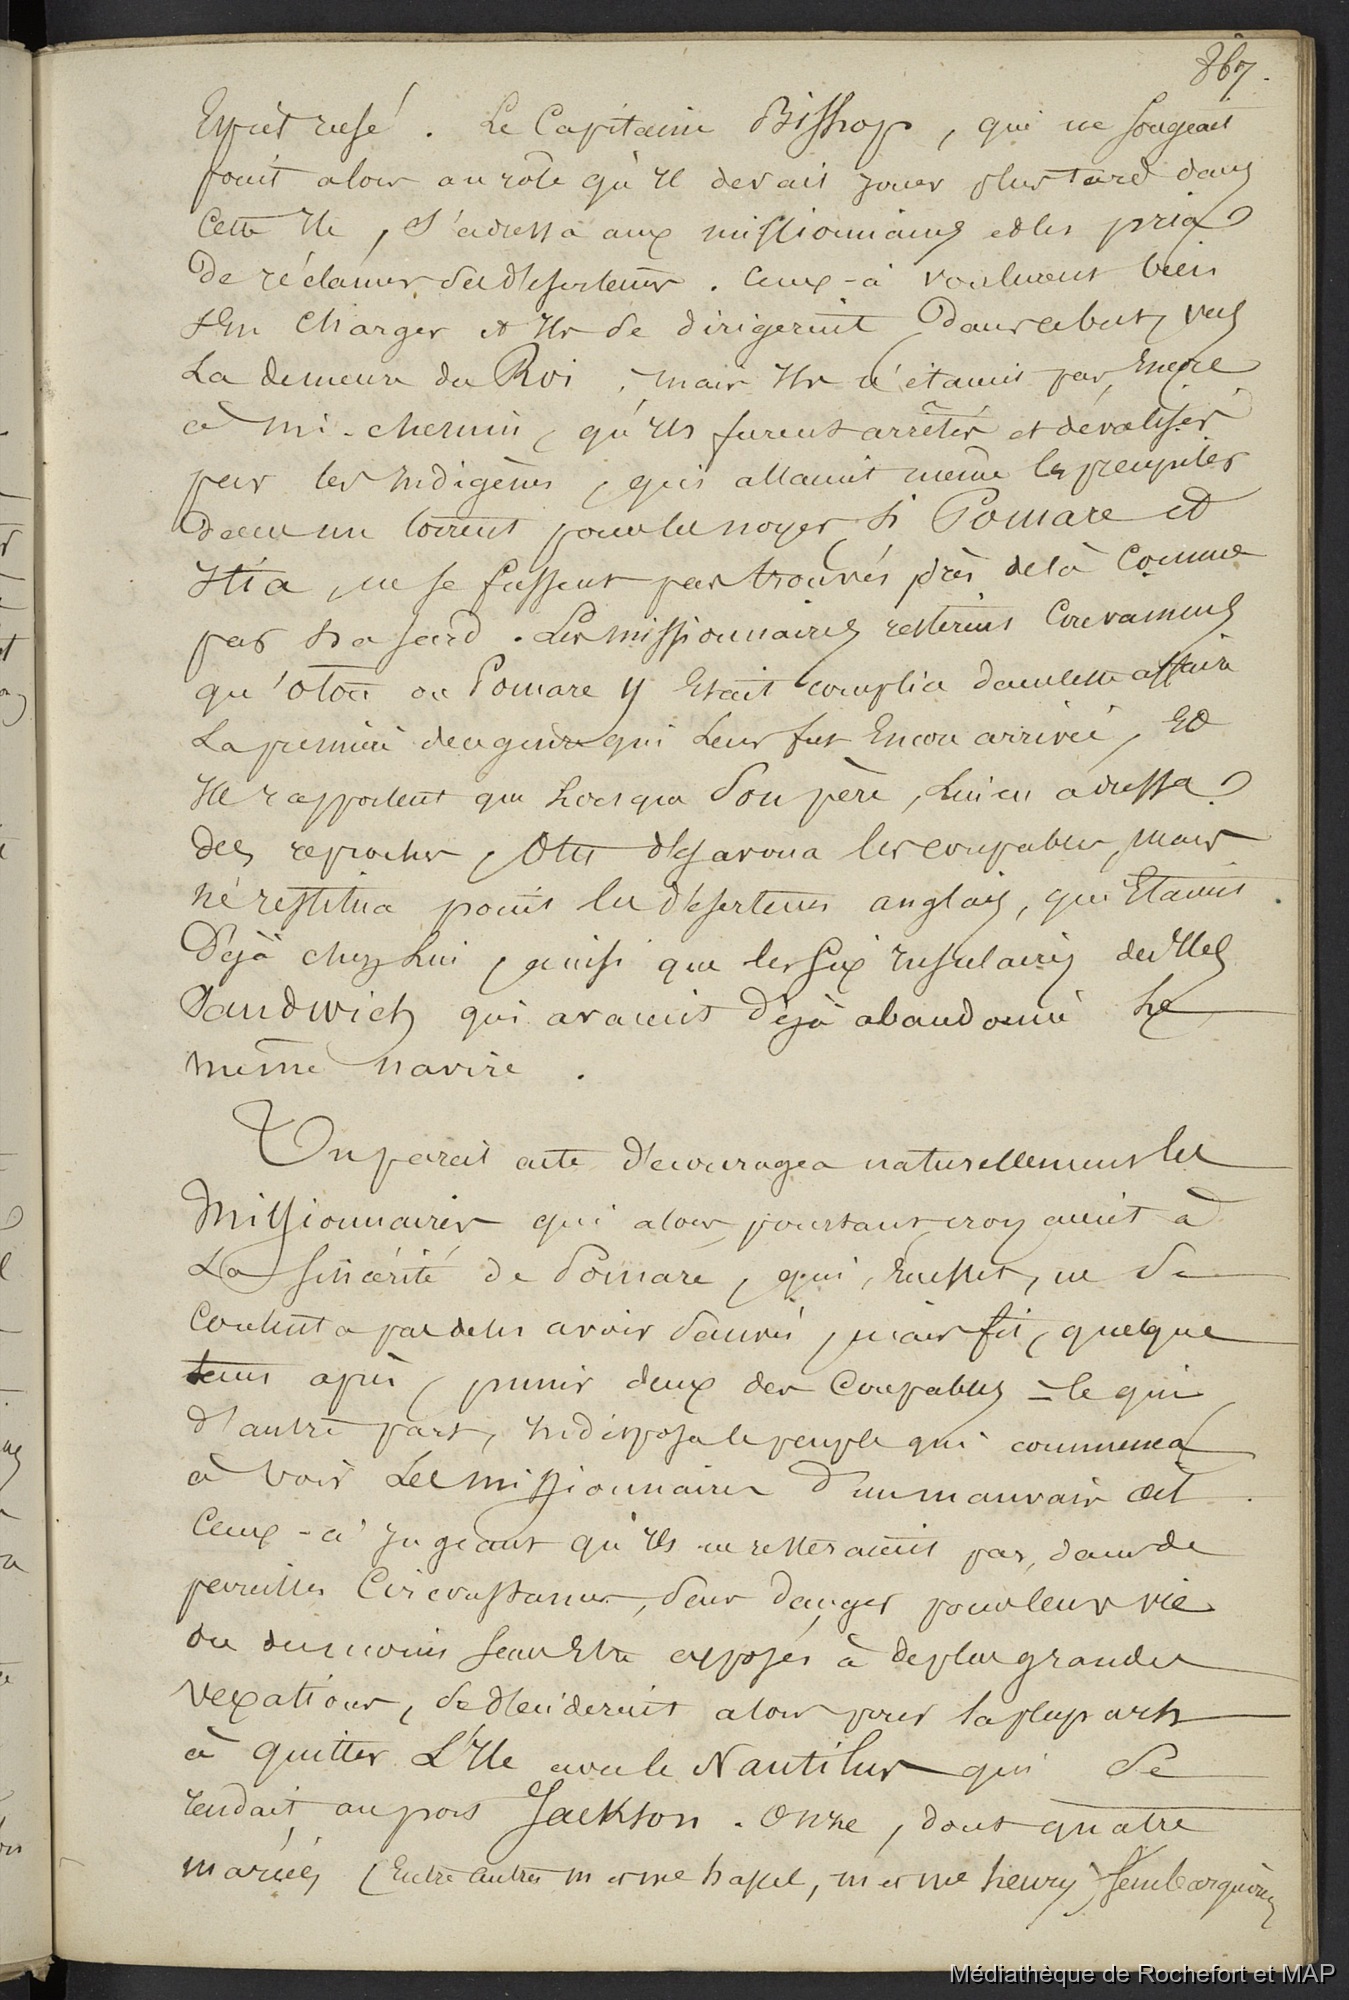 867.
Esprit rusé. Le Capitaine Bishop, qui ne songeait
point alors au rôle qu'il devait jouer plus tard dans
Cette Ile, s'adressa aux missionnaires et les pria
De réclamer ses déserteurs. Ceux-ci voulurent bien
s'En charger et ils se dirigerent dans ce but, vers
La demeure du Roi, mais ils n'étaient pas, Encore
à mi-chemin, qu'ils furent arrêtés et dévalisés
par les indigènes, qui allaient même les precipiter
Dans un torrent pour les noyer, si Pomare et
Itia, ne se fussent pas trouvés près de là Comme
par hasard. Les missionnaires resterent Convaincus
qu'Otou ou Pomare y était complice dans cette affaire
La première de ce genre qui Leur fut Encore arrivée, Et
Ils rapportent que Lorsque son père, Lui en adressa
des reproches, Otou désavoua les coupables, mais
ne restitua point les déserteurs anglais, qui Etaient
Déjà chez Lui, ainsi que les six insulaires des Iles
Sandwich qui avaient déjà abandonné Le
même navire.
Un pareil acte découragea naturellement les
Missionnaires qui alors pourtant croyaient à
La sincérité de Pomare, qui, En effet, ne se
Contenta pas de les avoir sauvés, mais fit, quelque
tems après, punir deux des Coupables = ce qui
d'autre part, indisposa le peuple qui commença
à voir Les missionnaires d'un mauvais œil.
Ceux-ci jugeant qu'ils ne resteraient pas, dans de
pareilles Circonstances, sans danger pour leur vie
ou du moins sans Etre exposés à de plus grandes
vexations, se déciderent alors pour la plupart
à quitter L'Ile avec le Nautilus qui se
rendait au port Jackson. Onze, dont quatre
mariés (Entre autres m et me hassel, m et me henry) s'embarquèrent
Médiathèque de Rochefort et MAP